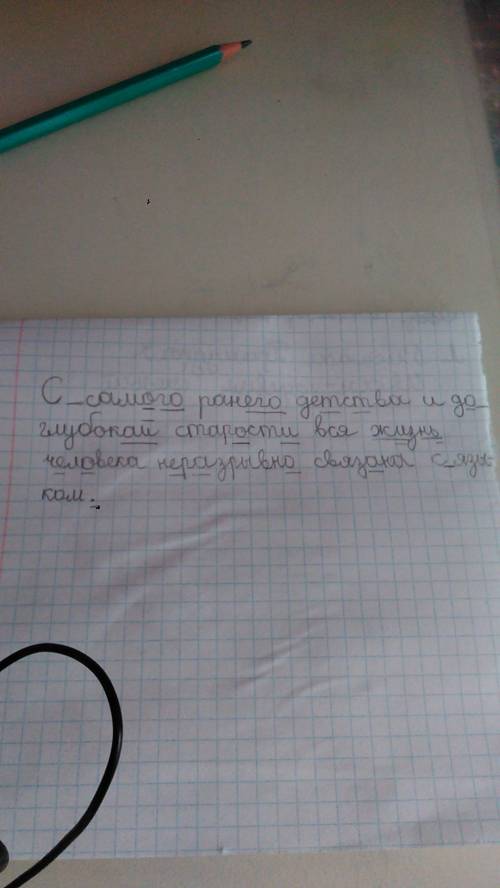 С_самого ранего детства и до_
глубокай старости вся жизнь
человека неразрывно связана с_язы-
ком.